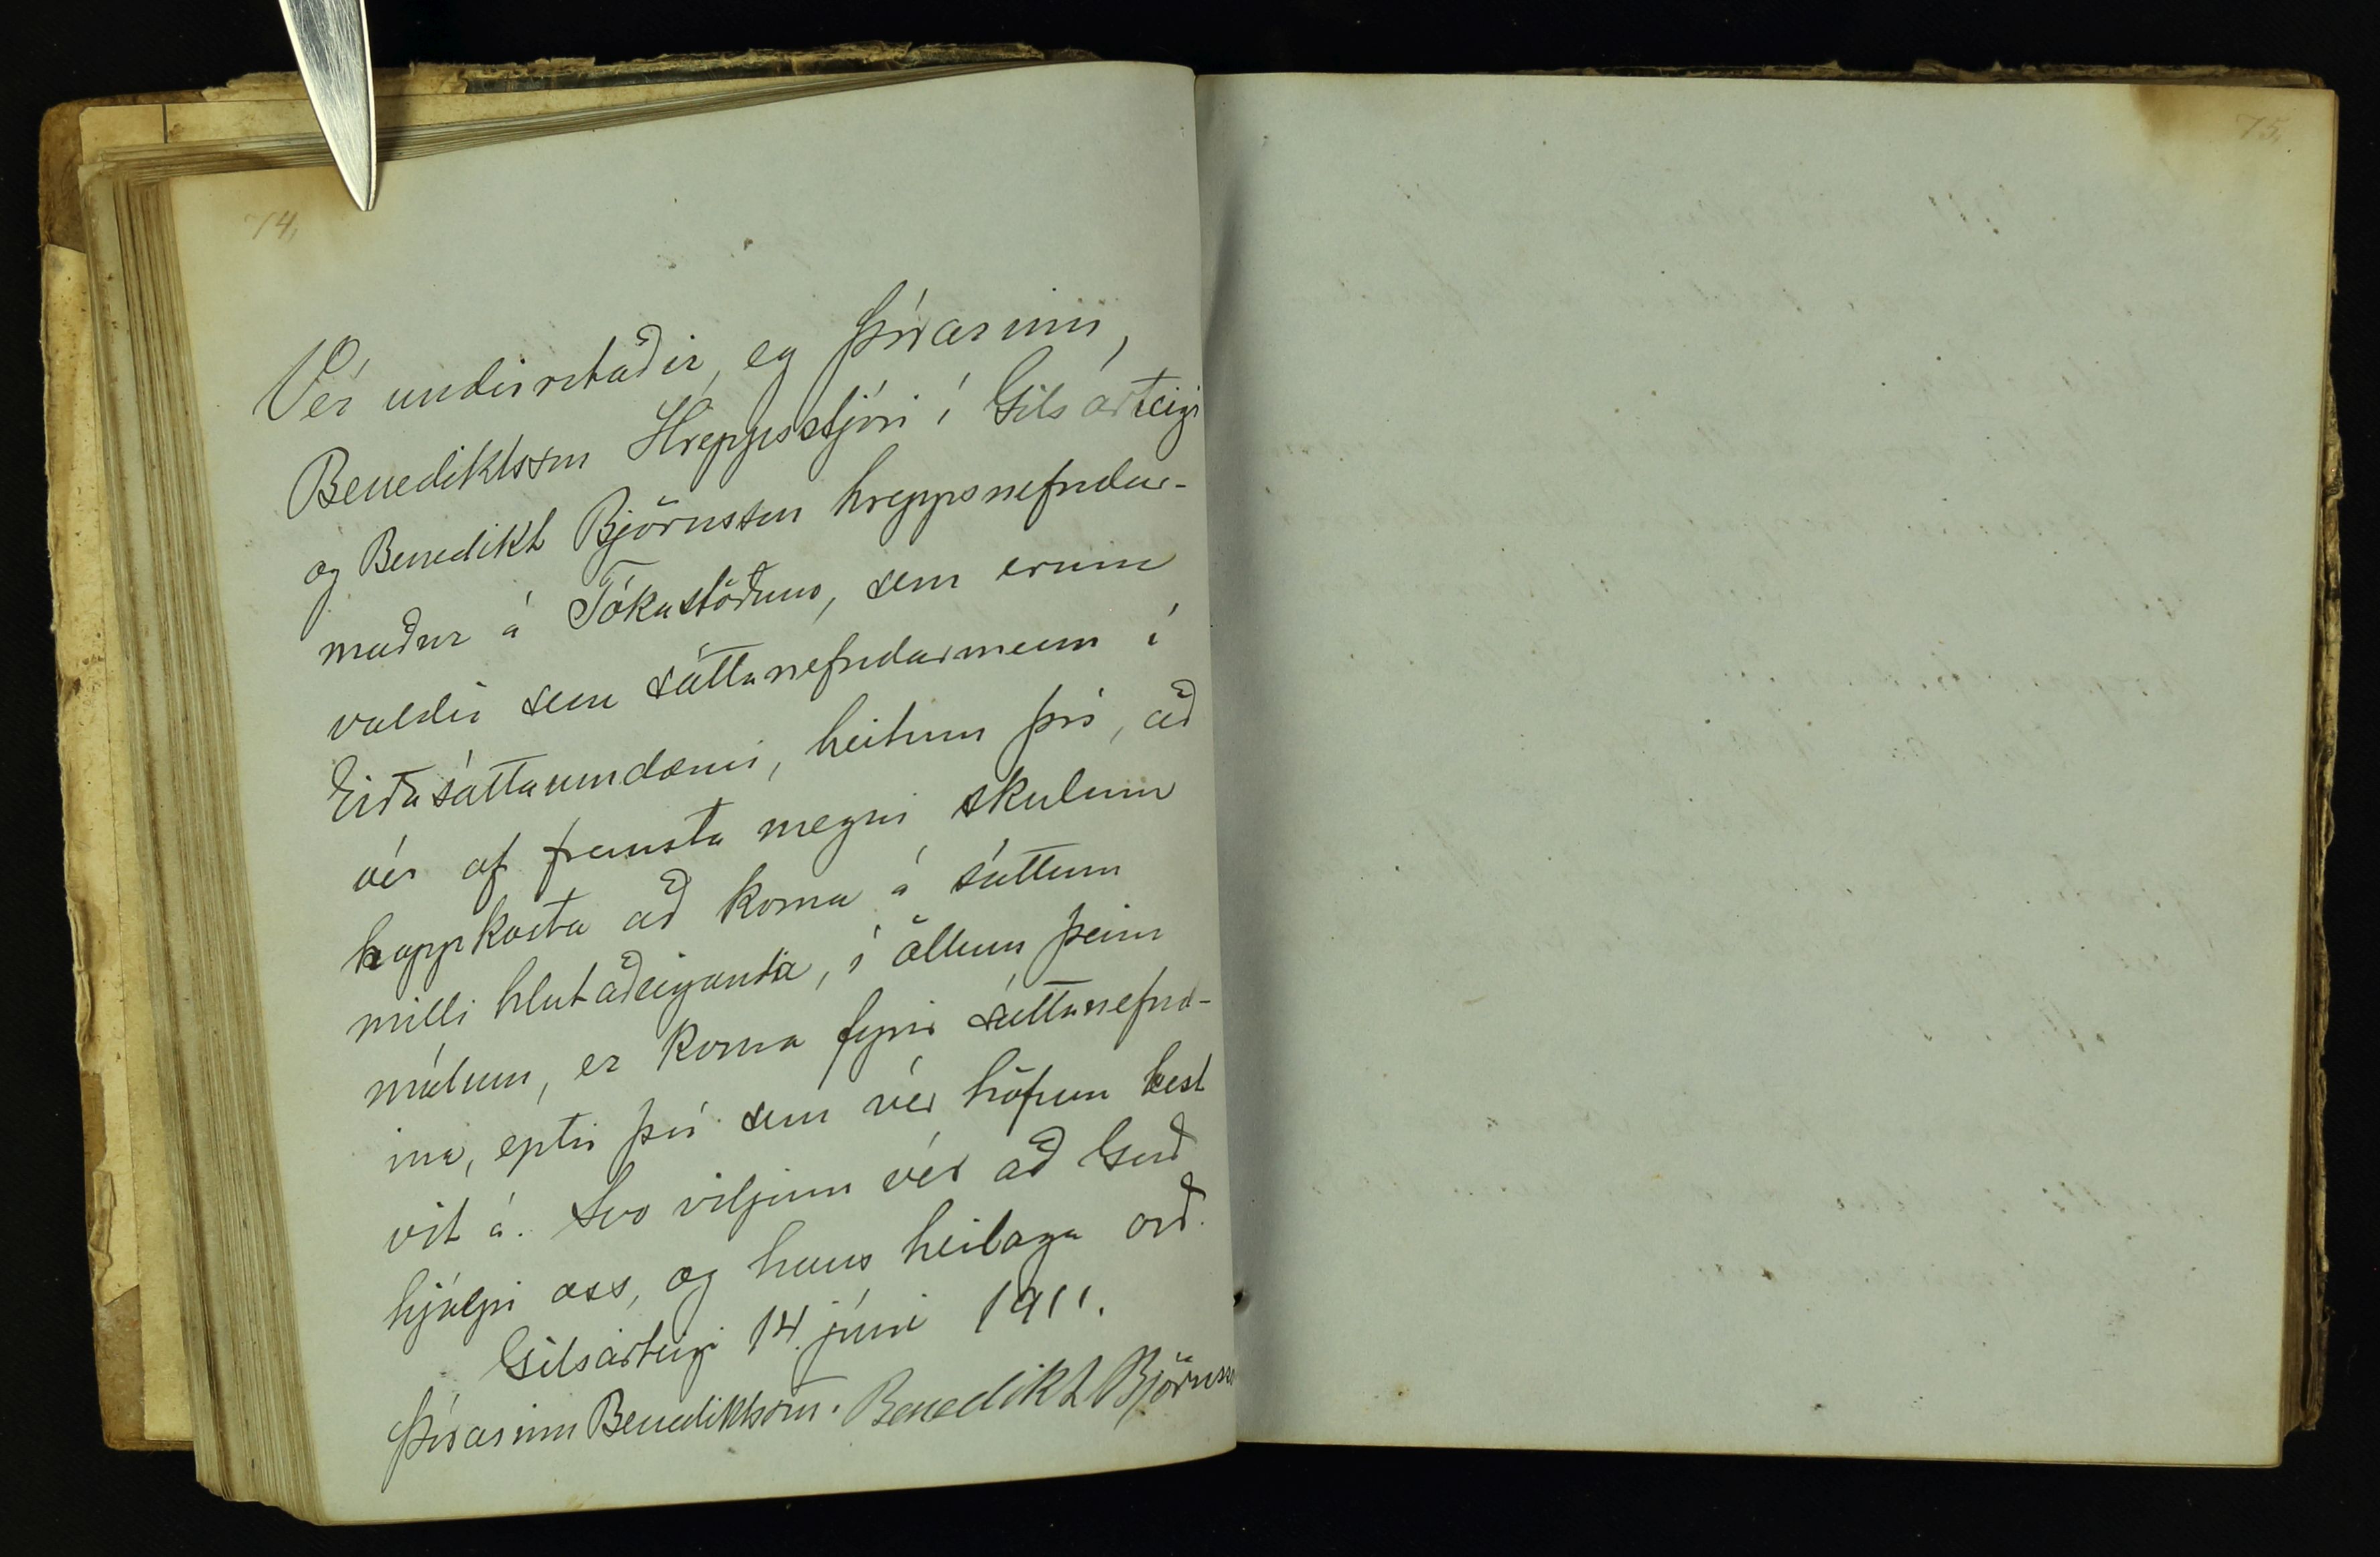 74.
75.
Vér undirritaðir, eg Þórarinn,
Benediktsson Hreppsstjóri í Gilsárteigi
og Benedikt Björnsson hreppsnefndar-
maður á Tókastöðum, sem erum
valdir sem sáttanefndarmenn í
Eiðasáttaumdæmi, heitum því, að
vér af fremsta megni skulum
kappkosta að koma á sáttum
milli hlutaðeiganda, í öllum þeim
málum, er koma fyrir sáttanefnd-
ina, eptir því sem vér höfum best
vit á. Svo viljum vér að Guð
hjálpi oss, og hans heilaga orð.
Gilsárteigi 14. júní 1911.
Þórarinn Benediktsson. Benedikt Björnsson